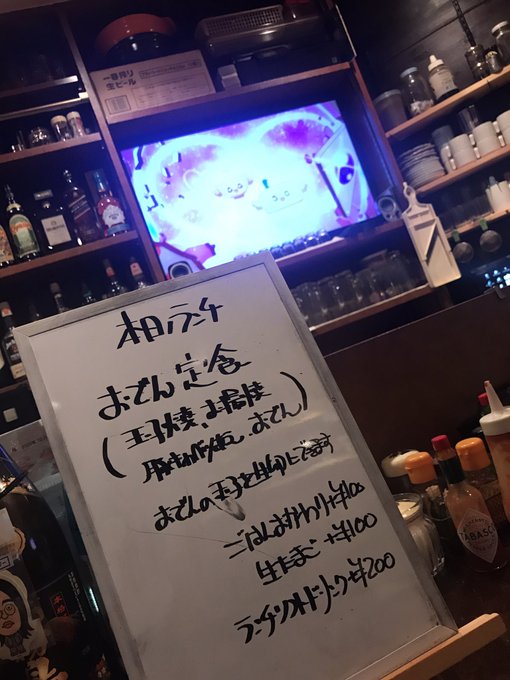 一番搾り
生ビール
本日ノランチ
おでん定食
(玉子焼、
おでん)
おでんの玉子と
ごはんおかわり+¥100
生たまご +¥100
ランチソフトドリンク¥200
TABASCO